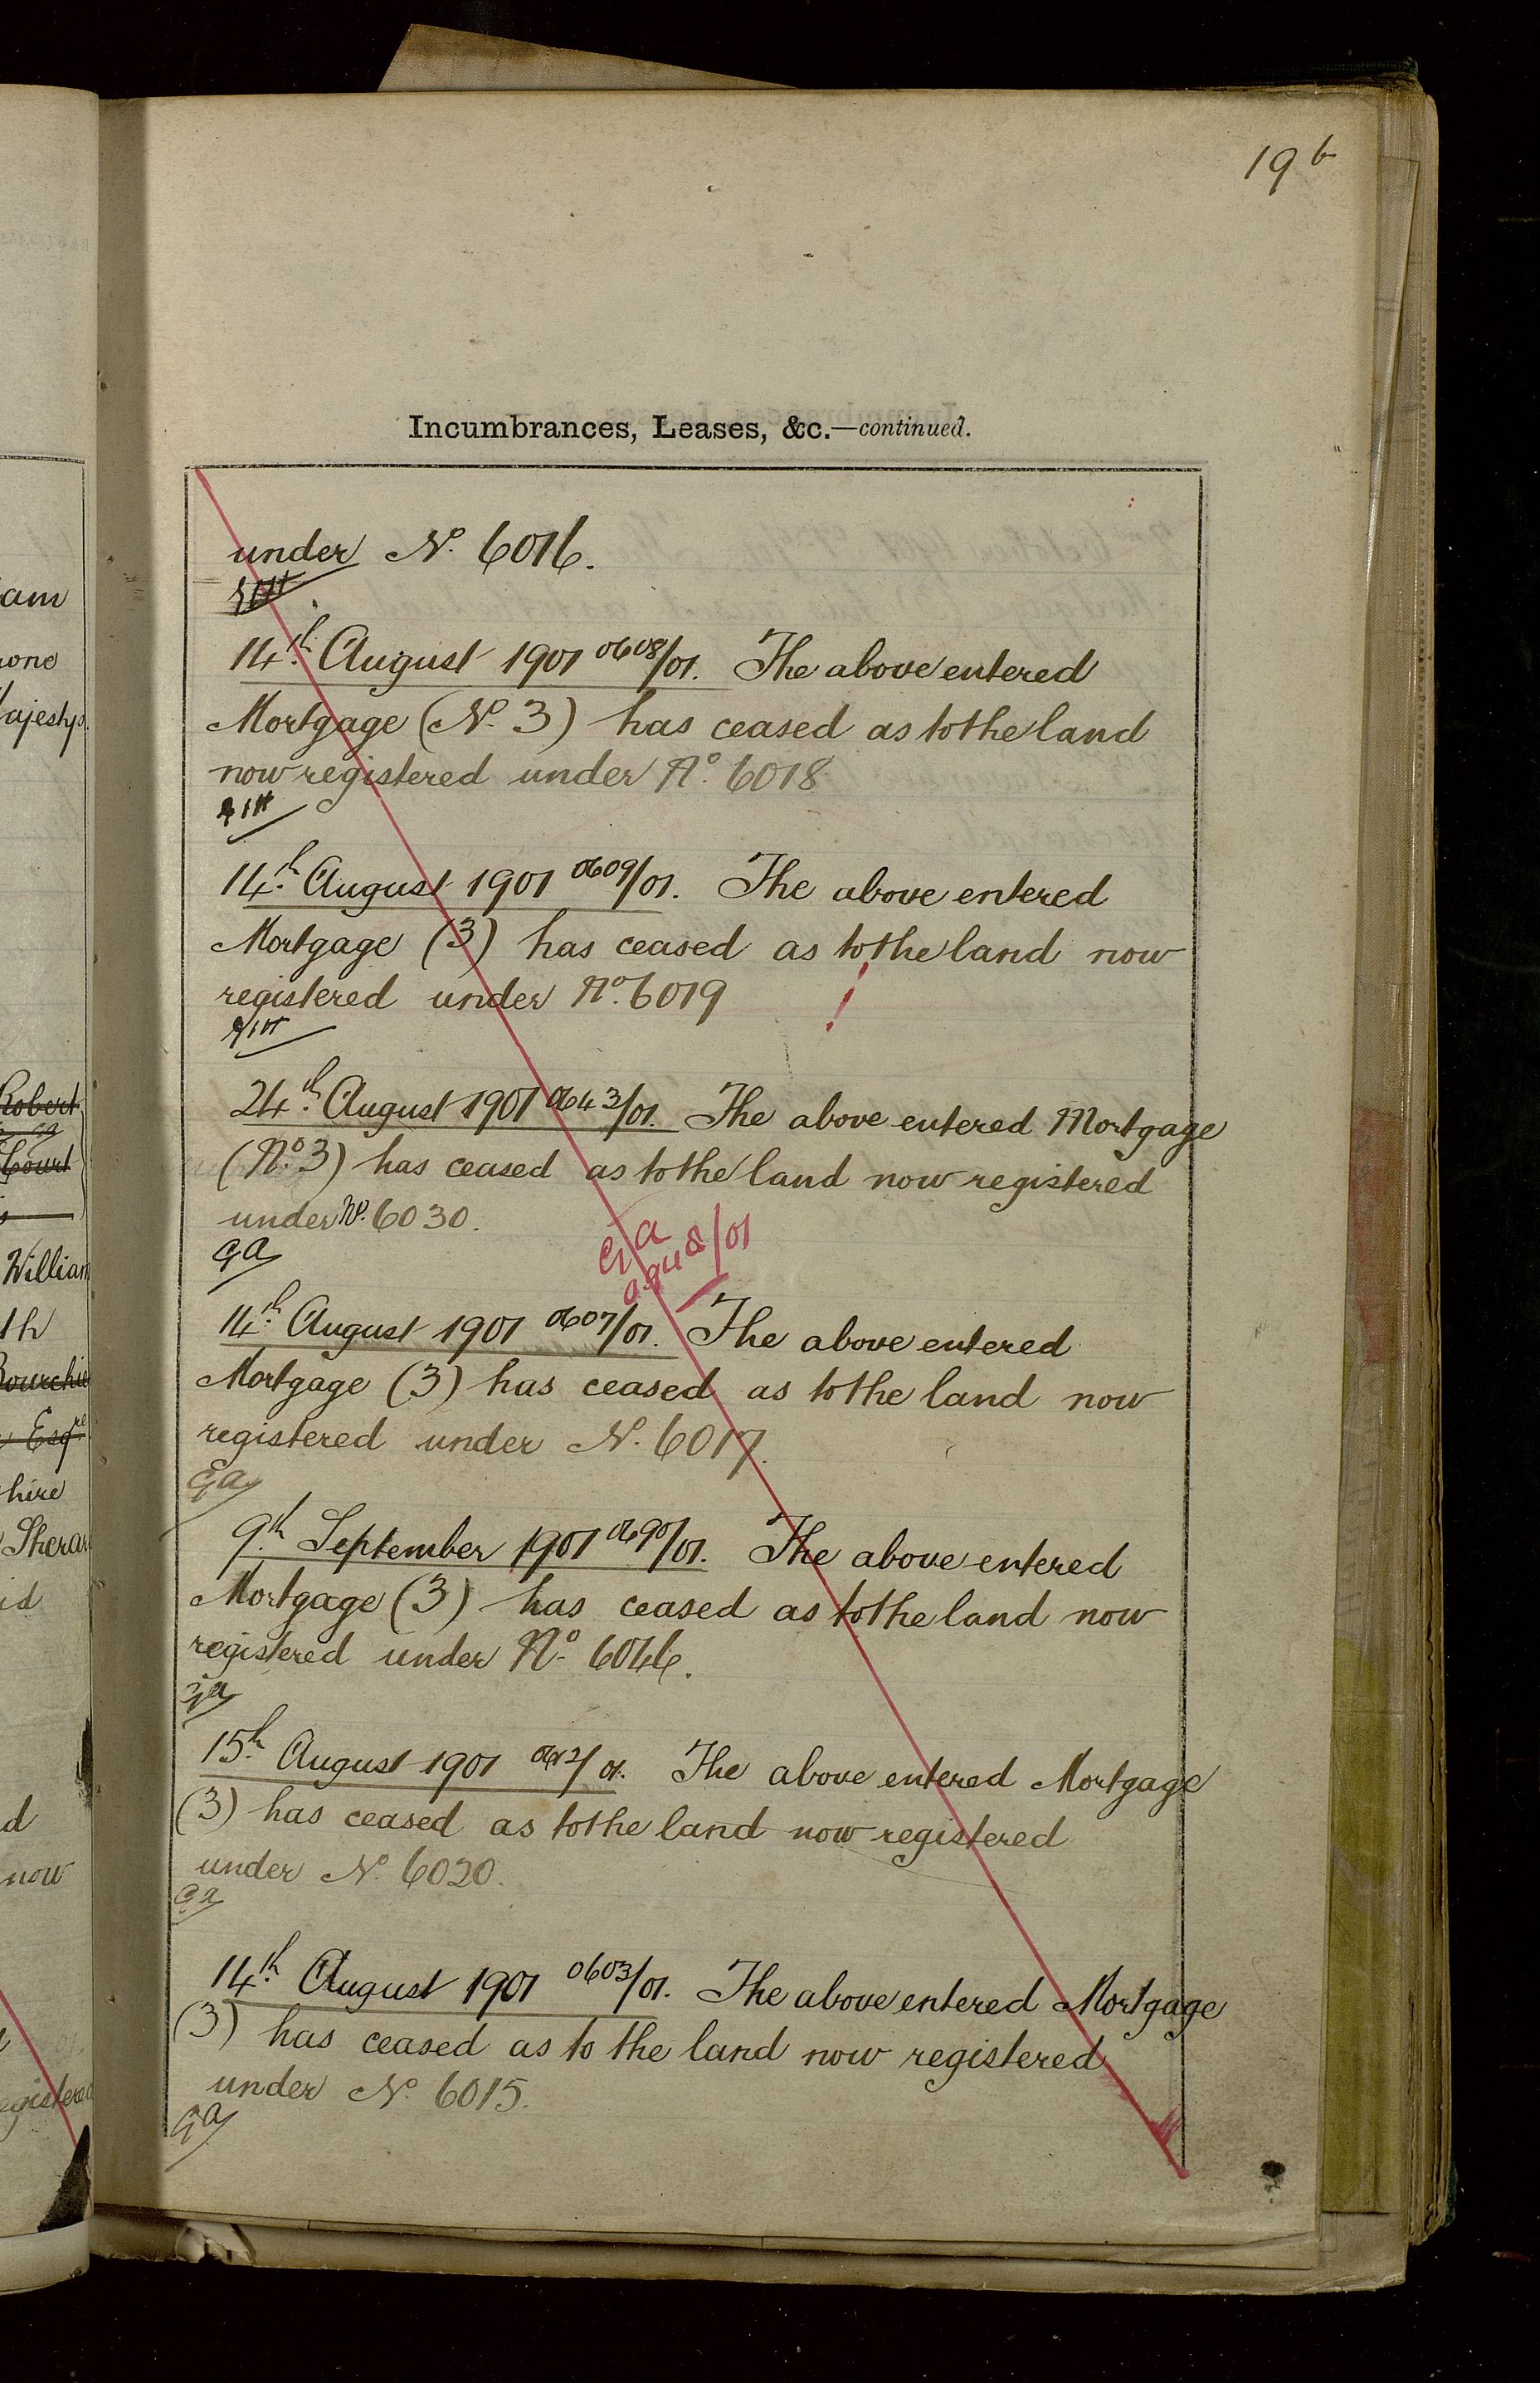 19 b
Incumbrances, Leases, &c.—continued.
under No. 6016.
14th August 1901 0608/01. The above entered
Mortgage (No. 3) has ceased as to the land
now registered under No. 6018
14th August 1901 0609/01. The above entered
Mortgage (3) has ceased as to the land now
registered under No. 6019
24th August 1901 0643/01. The above entered Mortgage
(No. 3) has ceased as to the land now registered
under No. 6030.
GA
GA
14th August 1901 0607/01. The above entered
Mortgage (3) has ceased as to the land now
registered under No. 6017.
GA
9th September 1901 0690/01. The above entered
Mortgage (3) has ceased as to the land now
registered under No. 6046.
GA
15th August 1901 0612/01. The above entered Mortgage
(3) has ceased as to the land now registered
under No. 6020.
GA
14th August 1901 0603/01. The above entered Mortgage
(3) has ceased as to the land now registered
under No. 6015.
GA
am
ajestys
Robert
Court
William
th
Esqre
hire
Sherar
id
d
now
egistered